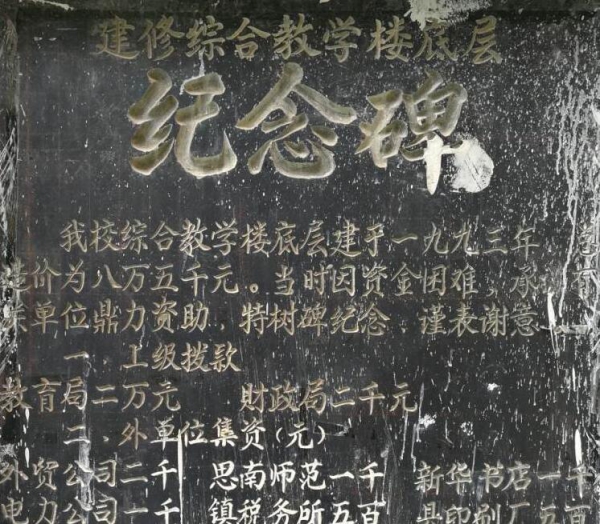 建修综合教学楼底层
纪念碑
我校综合教学楼底层建乎一九九三年
造价为八万五千元。当时因资金困难，承
单位鼎力资助，特树碑纪念，谨表谢意
一、上级拨款
教育局二万元 财政局二千元
二、外单位集资(元)
外贸公司二千 思南师范一千 新华书店一千
电力公司一千 镇税务所五百 县印刷厂五百